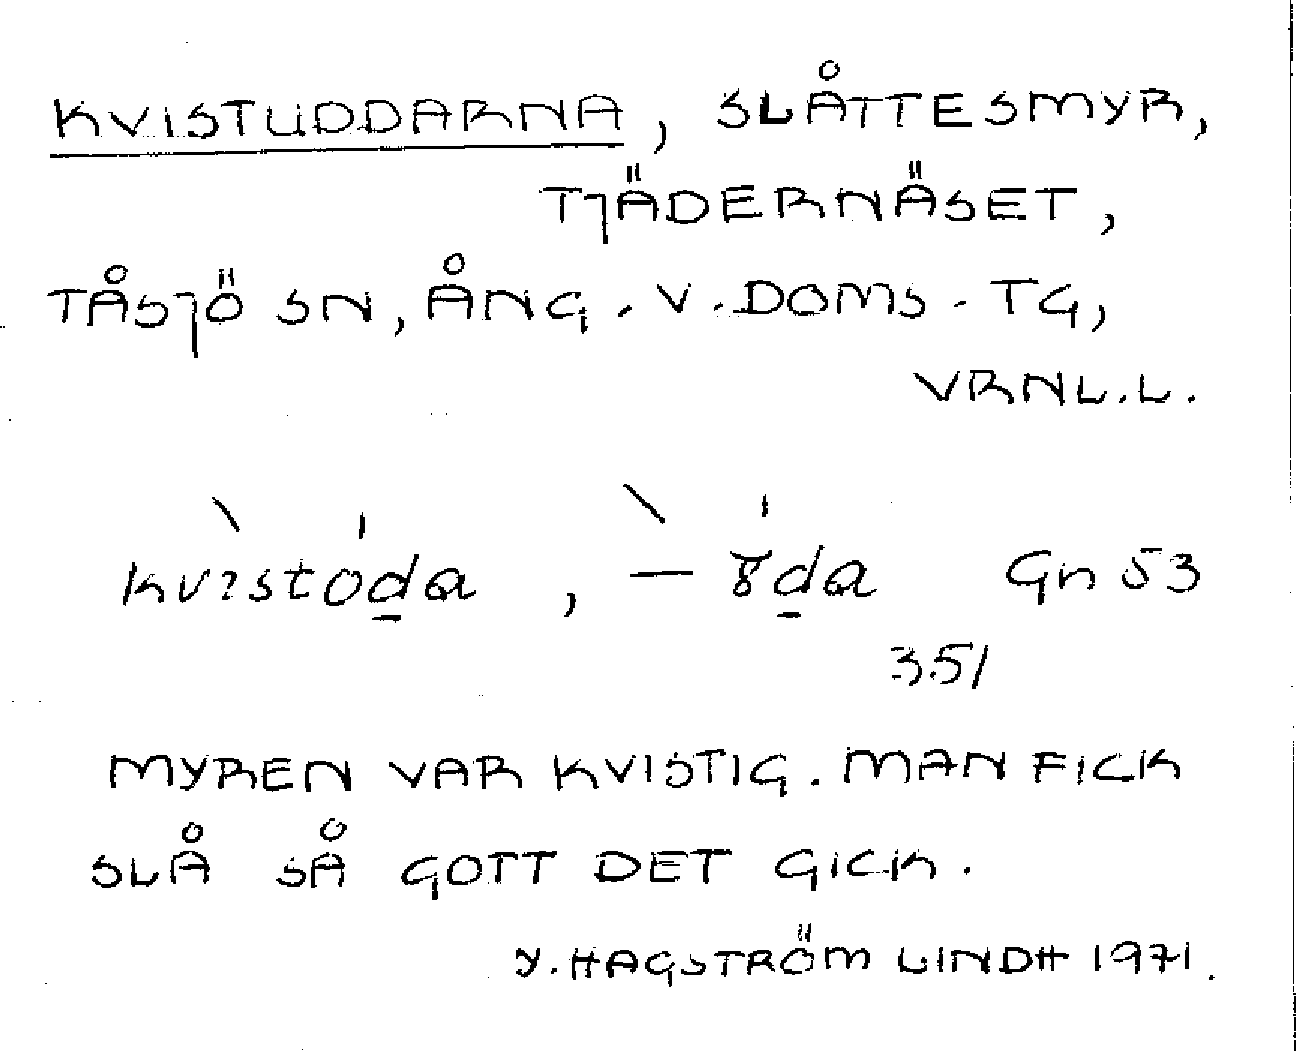 KVISTUDDARNA, SLÅTTESMYR,
TJÄDERNÄSET,
TÅSJÖ SN, ÅNG. V. DOMS. TG,
VRNL.L.
kvistoda, — 8da Gn 53
351
MYREN VAR KVISTIG. MAN FICK
SLÅ SÅ GOTT DET GICK.
Y. HAGSTRÖM LINDH 1971.